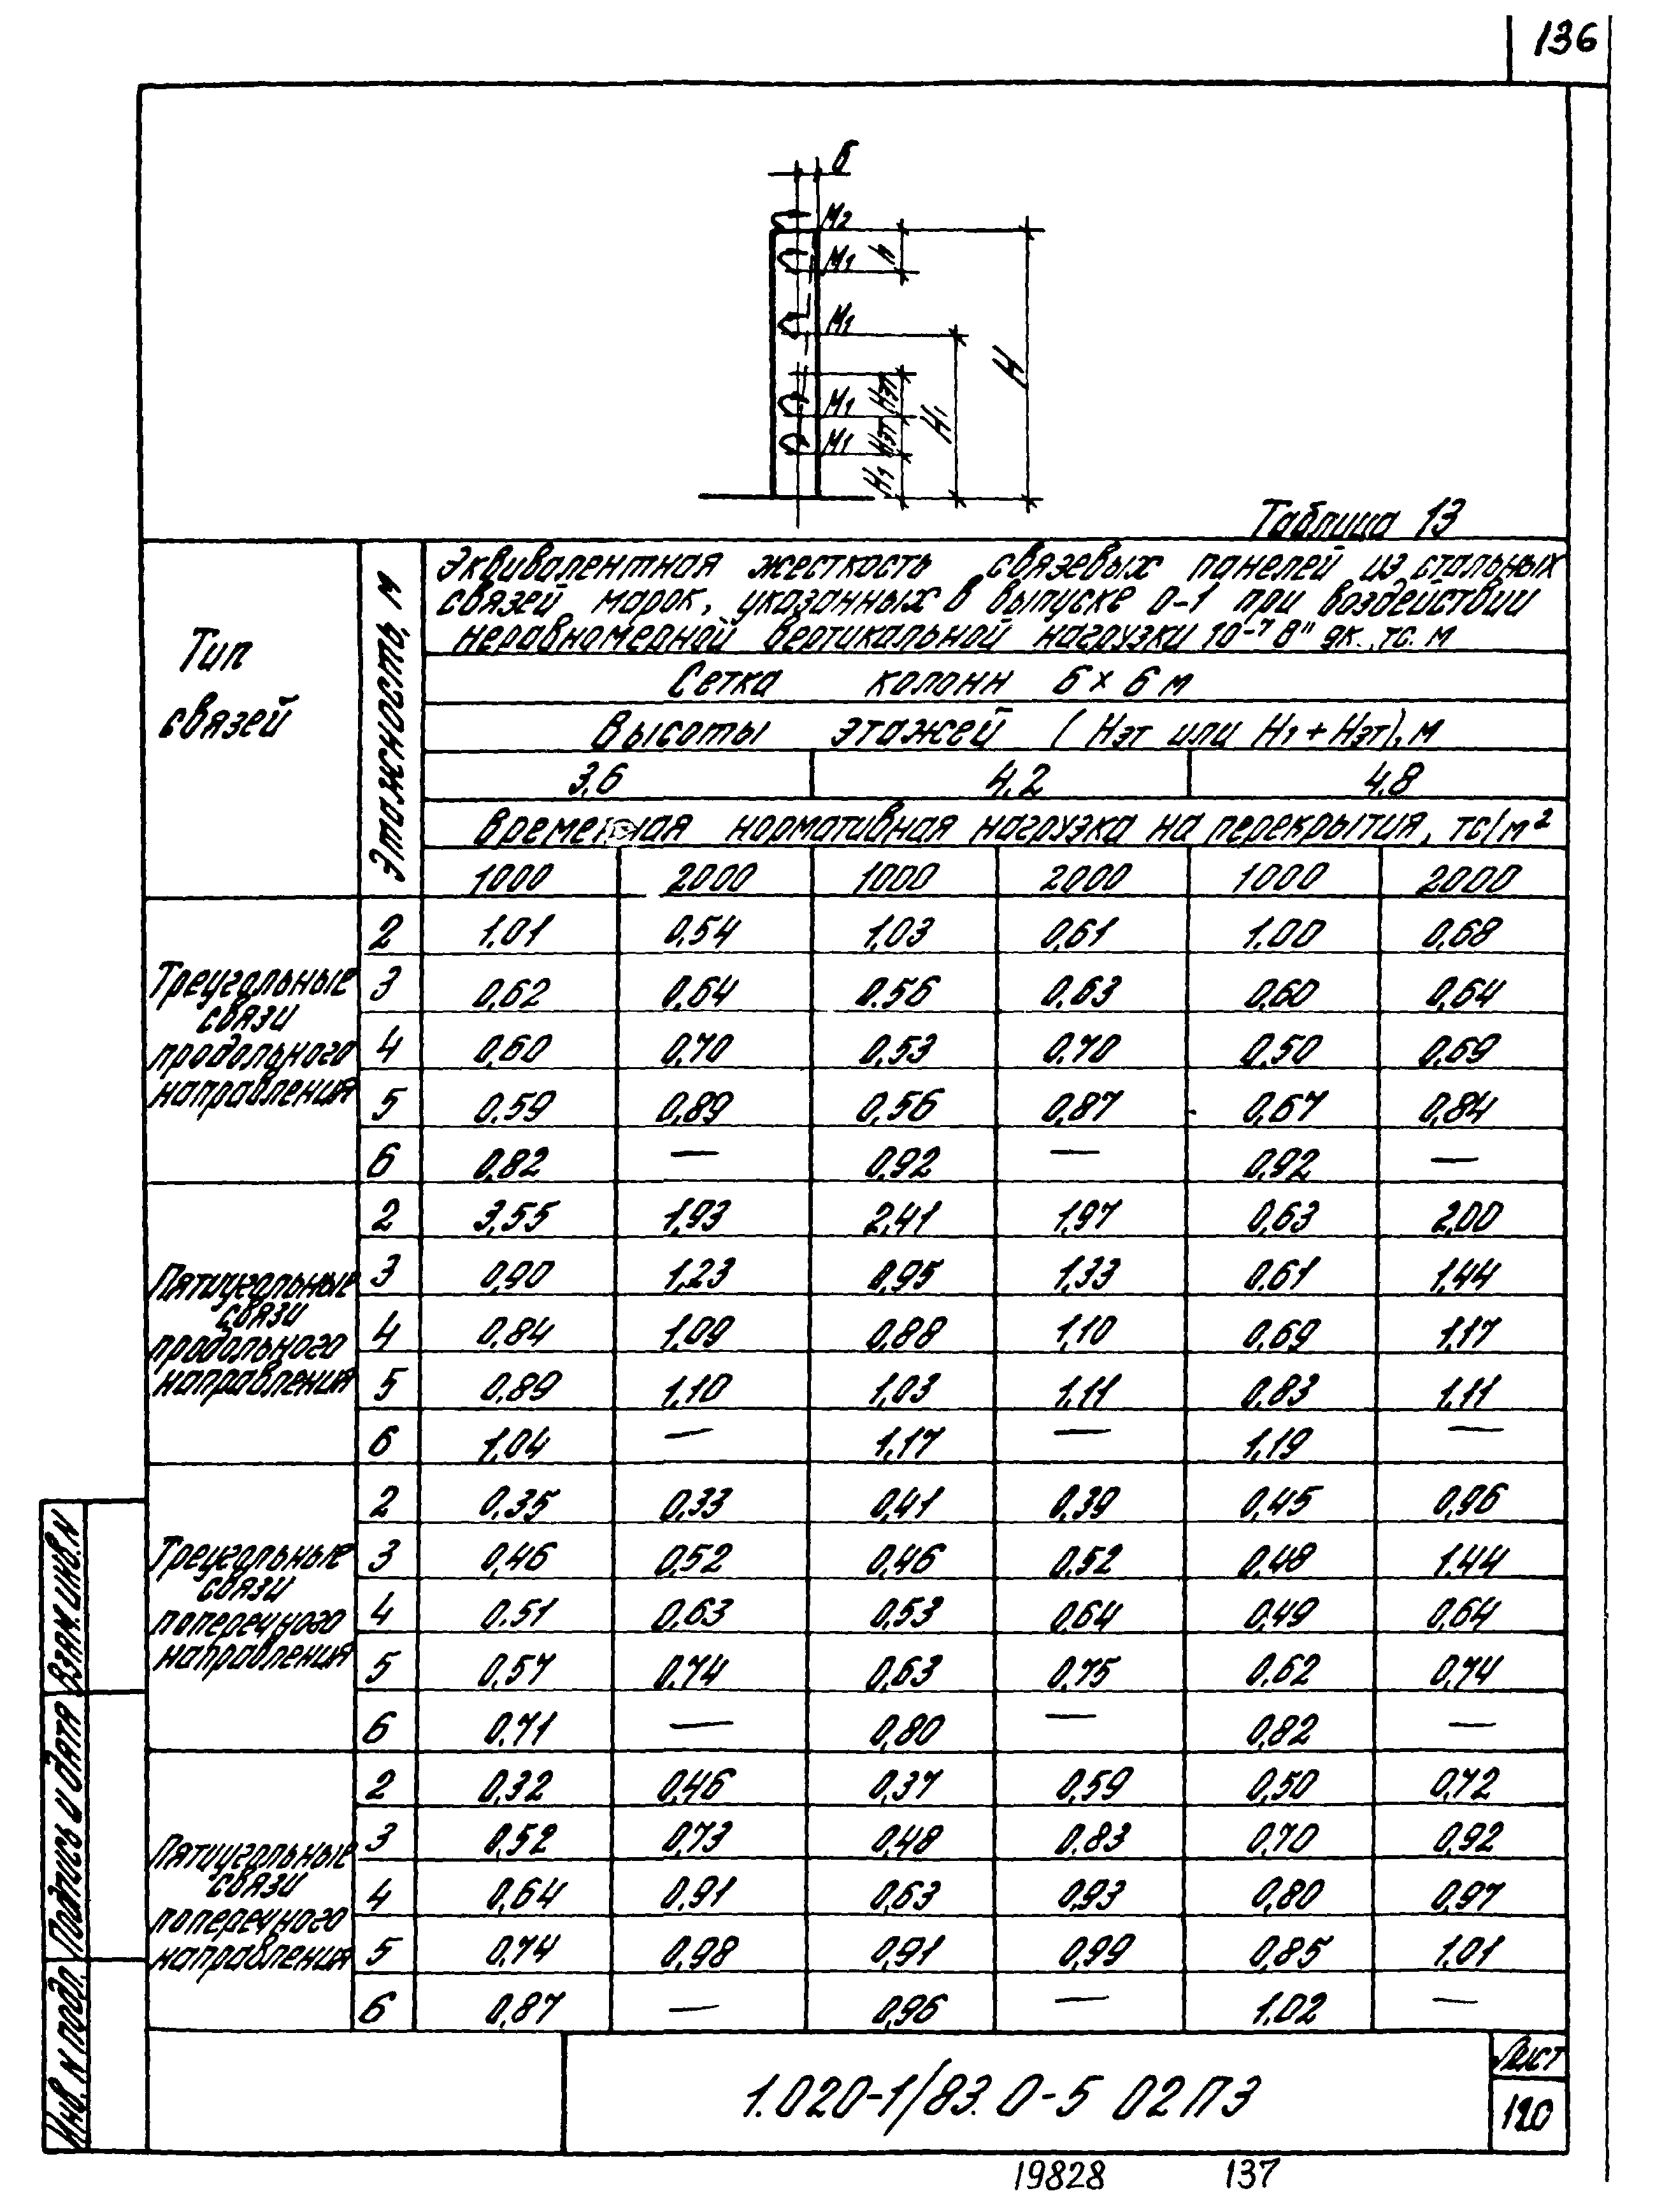 136
б
М2
М1
h
М1
М1
Нэт
М1
Нэт
Н1
Н1
Н
Таблица 13
Тип
связей
Этажность, м
Эквивалентная жесткость связевых панелей из стальных
связей марок, указанных в выпуске 0-1 при воздействии
неравномерной вертикальной нагрузки 10⁻⁷ В" эк., тс. м
Сетка колонн 6×6 м
Высоты этажей (Нэт или Н1+Нэт), м
3,6 4,2 4,8
Временная нормативная нагрузка на перекрытия, тс/м²
1000 2000 1000 2000 1000 2000
Треугальные
связи
продольного
направления
2 1,01 0,54 1,03 0,61 1,00 0,68
3 0,62 0,64 0,56 0,63 0,60 0,64
4 0,60 0,70 0,53 0,70 0,50 0,69
5 0,59 0,89 0,56 0,87 0,67 0,84
6 0,82 — 0,92 — 0,92 —
Пятиугальные
связи
продольного
направления
2 3,55 1,93 2,41 1,97 0,63 2,00
3 0,90 1,23 0,95 1,33 0,61 1,44
4 0,84 1,09 0,88 1,10 0,69 1,17
5 0,89 1,10 1,03 1,11 0,83 1,11
6 1,04 — 1,17 — 1,19 —
Треугальные
связи
поперечного
направления
2 0,35 0,33 0,41 0,39 0,45 0,96
3 0,46 0,52 0,46 0,52 0,48 1,44
4 0,51 0,63 0,53 0,64 0,49 0,64
5 0,57 0,74 0,63 0,75 0,62 0,74
6 0,71 — 0,80 — 0,82 —
Пятиугальные
связи
поперечного
направления
2 0,32 0,46 0,37 0,59 0,50 0,72
3 0,52 0,73 0,48 0,83 0,70 0,92
4 0,64 0,91 0,63 0,93 0,80 0,97
5 0,74 0,98 0,91 0,99 0,85 1,01
6 0,87 — 0,96 — 1,02 —
Взам. инв. N
Подпись и дата
Инв. N подл.
1.020-1/83. 0-5 02ПЗ
Лист
120
19828 137